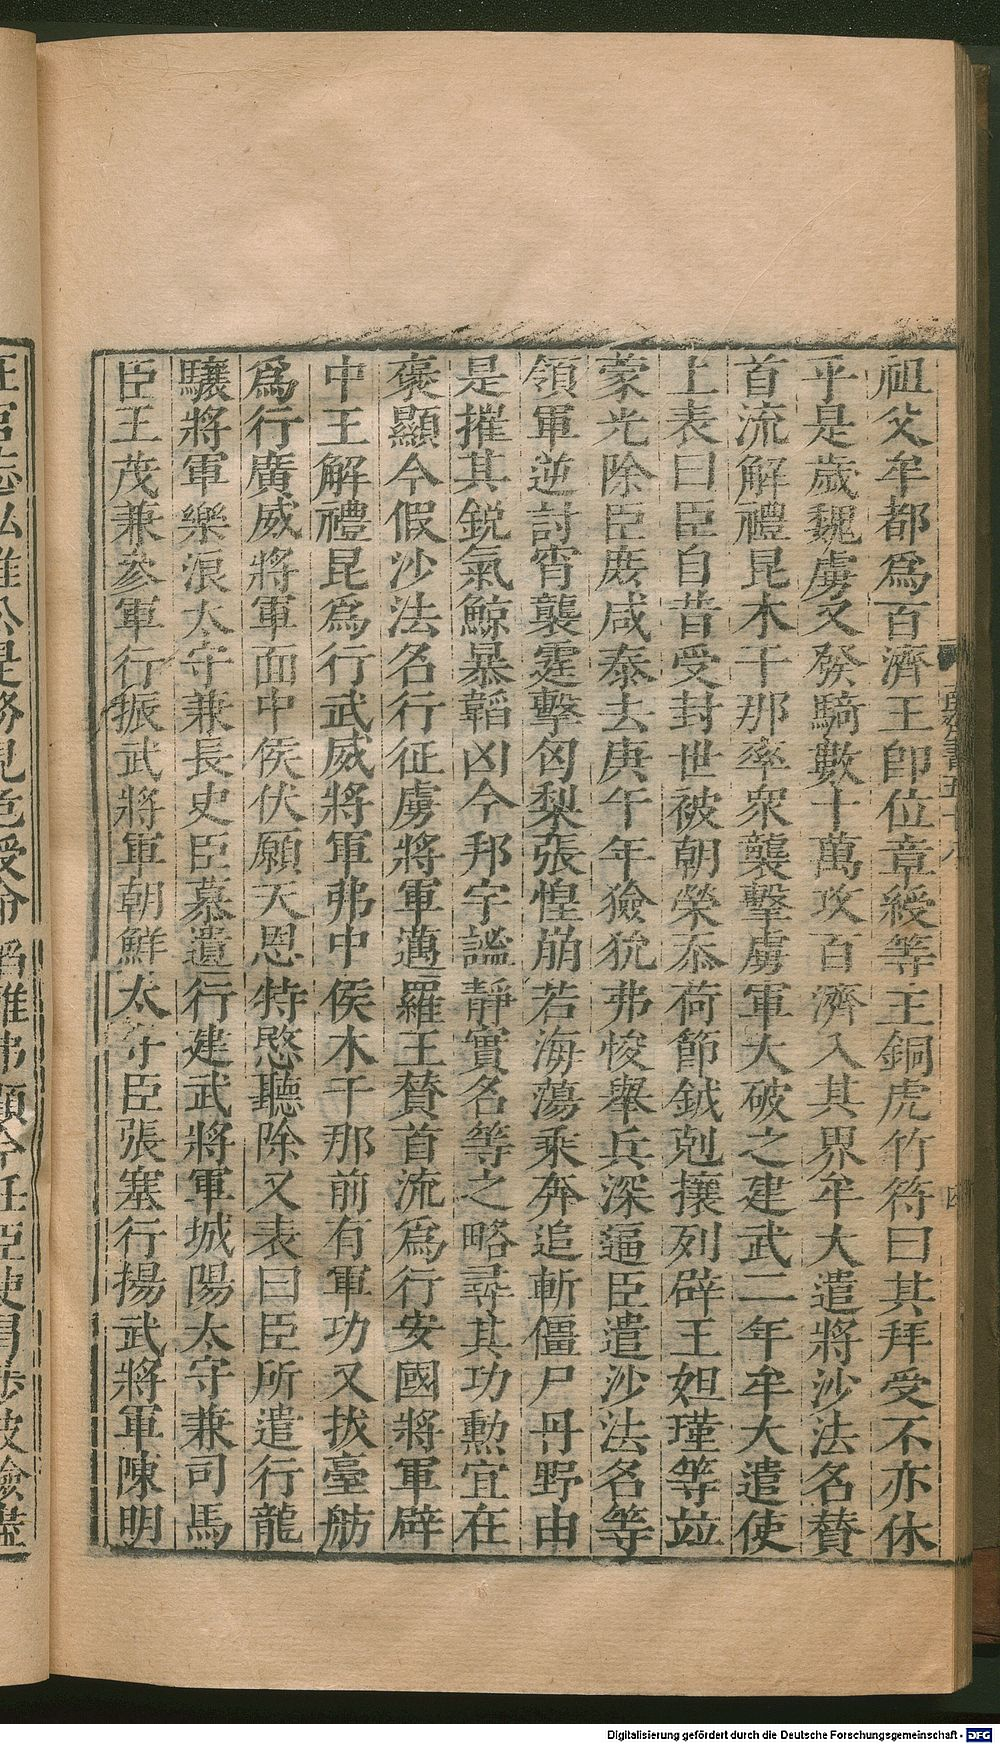 祖父牟都爲百濟王即位章綬等王銅虎竹符曰其拜受不亦休
乎是歲魏虜又發騎數十萬攻百濟入其界牟大遣將沙法名贊
首流解禮昆木干那率衆襲擊虜軍大破之建武二年牟大遣使
上表曰臣自昔受封世被朝榮忝荷節鉞剋攘列辟王姐瑾等竝
蒙光除臣庶咸泰去庚午年獫狁弗悛舉兵深逼臣遣沙法名等
領軍逆討宵襲霆擊匈梨張惶崩若海蕩乘奔追斬僵尸丹野由
是摧其銳氣鯨暴韜凶今邦宇謐靜實名等之略尋其功勳宜在
襃顯今假沙法名行征虜將軍邁羅王贊首流爲行安國將軍辟
中王解禮昆爲行武威將軍弗中侯木干那前有軍功又拔臺舫
爲行廣威將軍面中侯伏願天恩特愍聽除又表曰臣所遣行龍
驤將軍樂浪太守兼長史臣慕遺行建武將軍城陽太守兼司馬
臣王茂兼參軍行振武將軍朝鮮太守臣張塞行揚武將軍陳明
Digitalisierung gefördert durch die Deutsche Forschungsgemeinschaft - DFG